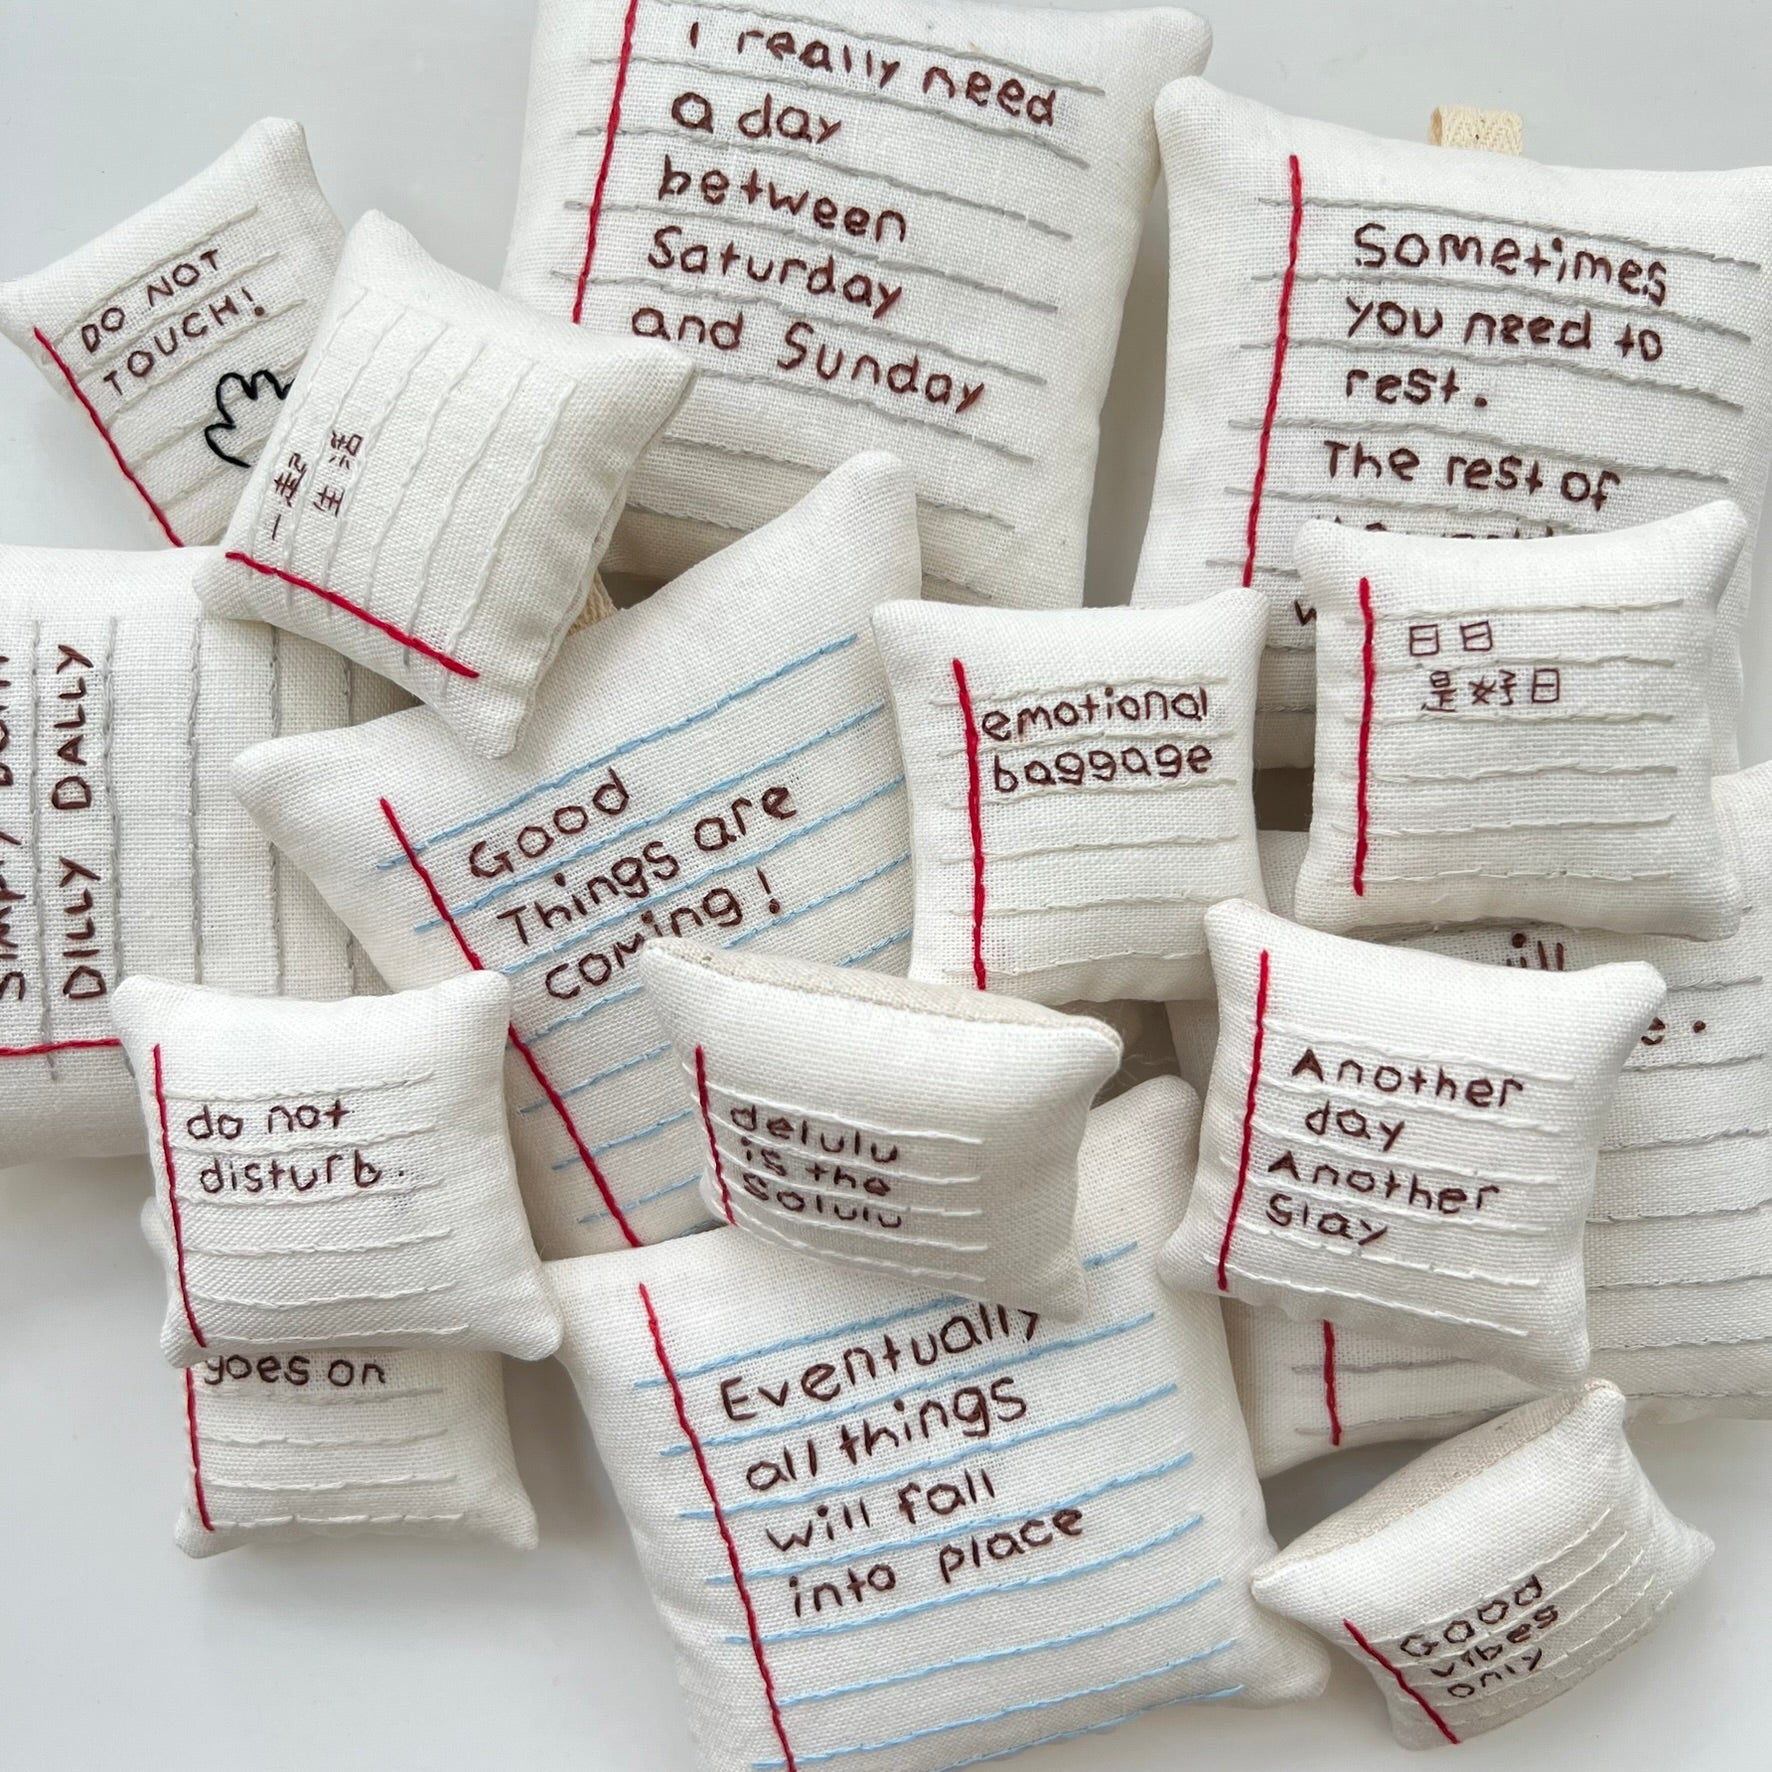 I really need
a day
between
Saturday
and Sunday
Sometimes
you need to
rest.
The rest of
DO NOT
TOUCH!
一起
生活
DILLY DALLY
Good
Things are
coming!
emotional
baggage
日日
是好日
do not
disturb.
goes on
delulu
is the
solulu
Another
day
Another
Slay
Eventually
all things
will fall
into place
Good
vibes
only